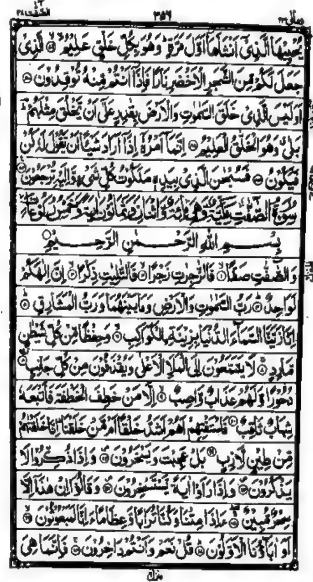 يُحْيِيْهَا الَّذِيْٓ اَنْشَاَهَآ اَوَّلَ مَرَّةٍ ؕ وَهُوَ بِكُلِّ خَلْقٍ عَلِيْمُ ۙ الَّذِيْ
جَعَلَ لَكُمْ مِّنَ الشَّجَرِ الْاَخْضَرِ نَارًا فَاِذَآ اَنْتُمْ مِّنْهُ تُوْقِدُوْنَ
اَوَلَيْسَ الَّذِيْ خَلَقَ السَّمٰوٰتِ وَالْاَرْضَ بِقٰدِرٍ عَلٰٓى اَنْ يَّخْلُقَ مِثْلَهُمْ
بَلٰى وَهُوَ الْخَلّٰقُ الْعَلِيْمُ اِنَّمَآ اَمْرُهٗٓ اِذَآ اَرَادَ شَيْئًا اَنْ يَّقُوْلَ لَهٗ كُنْ
فَيَكُوْنُ فَسُبْحٰنَ الَّذِيْ بِيَدِهٖ مَلَكُوْتُ كُلِّ شَيْءٍ وَّاِلَيْهِ تُرْجَعُوْنَ
سُوْرَةُ الصّٰٓفّٰتِ مَكِّيَّةٌ وَّهِيَ مِائَةٌ وَّاثْنَتَانِ وَثَمَانُوْنَ اٰيَةً وَّخَمْسُ رُكُوْعَاتٍ
بِسْمِ اللّٰهِ الرَّحْمٰنِ الرَّحِيْمِ
وَالصّٰٓفّٰتِ صَفًّا فَالزّٰجِرٰتِ زَجْرًا فَالتّٰلِيٰتِ ذِكْرًا اِنَّ اِلٰهَكُمْ
لَوَاحِدٌ رَبُّ السَّمٰوٰتِ وَالْاَرْضِ وَمَا بَيْنَهُمَا وَرَبُّ الْمَشَارِقِ
اِنَّا زَيَّنَّا السَّمَآءَ الدُّنْيَا بِزِيْنَةِ اِۨلْكَوَاكِبِ وَحِفْظًا مِّنْ كُلِّ شَيْطٰنٍ
مَّارِدٍ لَا يَسَّمَّعُوْنَ اِلَى الْمَلَاِ الْاَعْلٰى وَيُقْذَفُوْنَ مِنْ كُلِّ جَانِبٍ
دُحُوْرًا وَّلَهُمْ عَذَابٌ وَّاصِبٌ اِلَّا مَنْ خَطِفَ الْخَطْفَةَ فَاَتْبَعَهٗ
شِهَابٌ ثَاقِبٌ فَاسْتَفْتِهِمْ اَهُمْ اَشَدُّ خَلْقًا اَمْ مَّنْ خَلَقْنَا ؕ اِنَّا خَلَقْنٰهُمْ
مِّنْ طِيْنٍ لَّازِبٍ بَلْ عَجِبْتَ وَيَسْخَرُوْنَ وَاِذَا ذُكِّرُوْا لَا
يَذْكُرُوْنَ وَاِذَا رَاَوْا اٰيَةً يَّسْتَسْخِرُوْنَ وَقَالُوْٓا اِنْ هٰذَآ اِلَّا
سِحْرٌ مُّبِيْنٌ ءَاِذَا مِتْنَا وَكُنَّا تُرَابًا وَّعِظَامًا ءَاِنَّا لَمَبْعُوْثُوْنَ
اَوَ اٰبَآؤُنَا الْاَوَّلُوْنَ قُلْ نَعَمْ وَاَنْتُمْ دَاخِرُوْنَ فَاِنَّمَا هِيَ